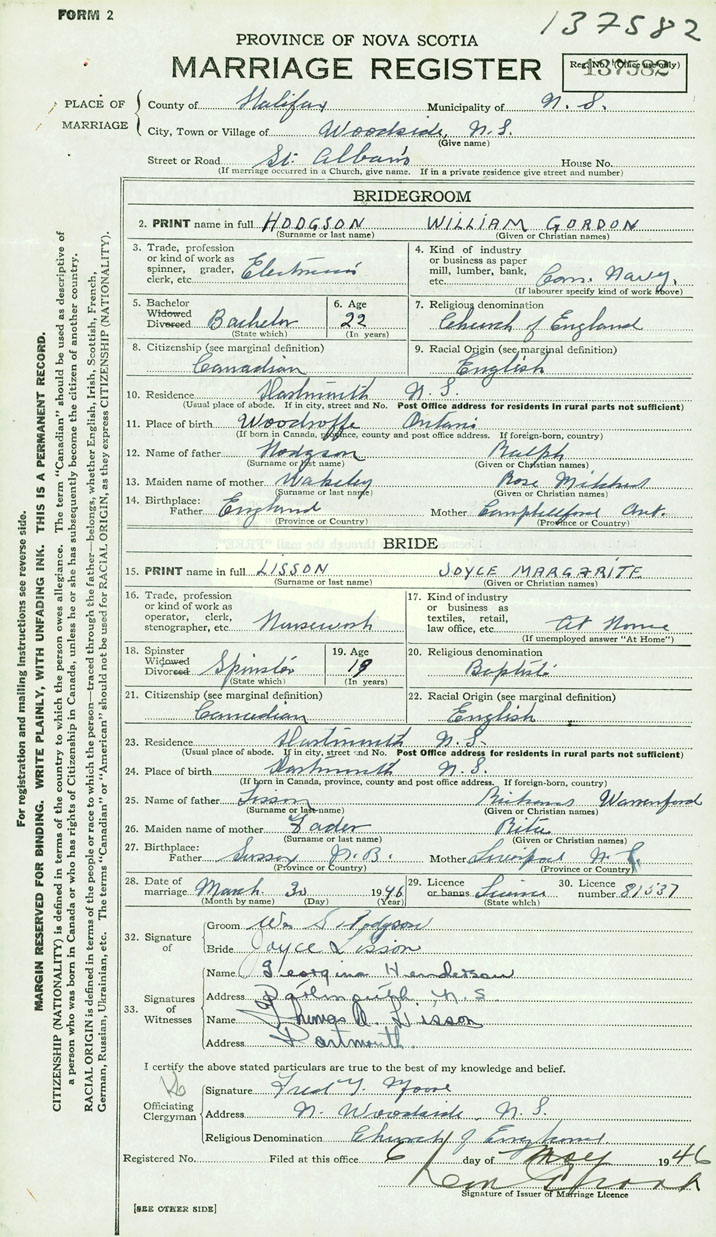 FORM 2
137582
PROVINCE OF NOVA SCOTIA
MARRIAGE REGISTER
Reg. No. (Office use only)
137582
PLACE OF MARRIAGE
County of Halifax Municipality of N. S.
City, Town or Village of Woodside, N.S.
(Give name)
Street or Road St. Alban's House No.
(If marriage occurred in a Church, give name. If in a private residence give street and number)
BRIDEGROOM
2. PRINT name in full HODGSON WILLIAM GORDON
(Surname or last name) (Given or Christian names)
3. Trade, profession or kind of work as spinner, grader, clerk, etc.
4. Kind of industry or business as paper mill, lumber, bank, etc. Can. Navy.
(If labourer specify kind of work above)
5. Bachelor Widowed Divorced Bachelor
(State which)
6. Age 22
(In years)
7. Religious denomination Church of England
8. Citizenship (see marginal definition) Canadian
9. Racial Origin (see marginal definition) English
10. Residence Dartmouth N. S.
(Usual place of abode. If in city, street and No. Post Office address for residents in rural parts not sufficient)
11. Place of birth Woodroffe Ontario
(If born in Canada, province, county and post office address. If foreign-born, country)
12. Name of father Hodgson Ralph
(Surname or last name) (Given or Christian names)
13. Maiden name of mother Wakeley Rose
(Surname or last name) (Given or Christian names)
14. Birthplace: Father England Mother Campbellford Ont.
(Province or Country) (Province or Country)
BRIDE
15. PRINT name in full LISSON JOYCE MARGARITE
(Surname or last name) (Given or Christian names)
16. Trade, profession or kind of work as operator, clerk, stenographer, etc. Housework
17. Kind of industry or business as textiles, retail, law office, etc. At Home
(If unemployed answer "At Home")
18. Spinster Widowed Divorced Spinster
(State which)
19. Age 19
(In years)
20. Religious denomination Baptist
21. Citizenship (see marginal definition) Canadian
22. Racial Origin (see marginal definition) English
23. Residence Dartmouth N. S.
(Usual place of abode. If in city, street and No. Post Office address for residents in rural parts not sufficient)
24. Place of birth Dartmouth N. S.
(If born in Canada, province, county and post office address. If foreign-born, country)
25. Name of father Lisson Warrenford
(Surname or last name) (Given or Christian names)
26. Maiden name of mother Fader Rita
(Surname or last name) (Given or Christian names)
27. Birthplace: Father Sussex N.B. Mother Liverpool N.S.
(Province or Country) (Province or Country)
28. Date of marriage March 30 1946
(Month by name) (Day) (Year)
29. Licence or banns License
(State which)
30. Licence number 81537
32. Signature of
Groom Wm G Hodgson
Bride Joyce Lisson
33. Signatures of Witnesses
Name Georgina Henderson
Address Dartmouth, N. S
Name Thomas A. Lisson
Address Dartmouth.
I certify the above stated particulars are true to the best of my knowledge and belief.
Officiating Clergyman
Signature Fred Y.
Address N. Woodside, N. S.
Religious Denomination Church of England
Registered No. Filed at this office 6 day of May 1946
Signature of Issuer of Marriage Licence
[SEE OTHER SIDE]
For registration and mailing instructions see reverse side.
MARGIN RESERVED FOR BINDING. WRITE PLAINLY, WITH UNFADING INK. THIS IS A PERMANENT RECORD.
CITIZENSHIP (NATIONALITY) is defined in terms of the country to which the person owes allegiance. The term "Canadian" should be used as descriptive of
a person who was born in Canada or who has rights of Citizenship in Canada, unless he or she has subsequently become the citizen of another country.
RACIAL ORIGIN is defined in terms of the people or race to which the person—traced through the father—belongs, whether English, Irish, Scottish, French,
German, Russian, Ukrainian, etc. The terms "Canadian" or "American" should not be used for RACIAL ORIGIN, as they express CITIZENSHIP (NATIONALITY).